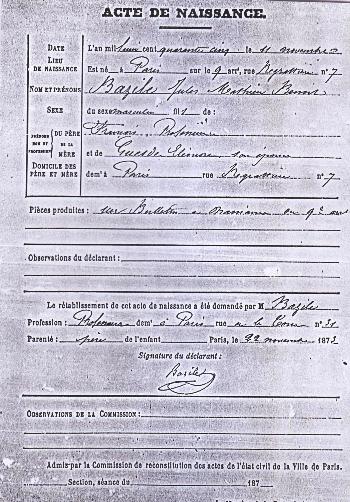 ACTE DE NAISSANCE.
DATE L'an mil huit cent quarante cinq le 11 novembre
LIEU DE NAISSANCE Est né à Paris sur le 9e arrt, rue Regrattier n° 7
NOM ET PRÉNOMS Bazile Jules Mathieu
SEXE du sexe masculin fils de:
PRÉNOMS NOM ET PROFESSION DU PÈRE François Professeur
DE LA MÈRE et de Guesde Eléonore son épouse
DOMICILE DES PÈRE ET MÈRE demt à Paris rue Regrattier n° 7
Pièces produites: sur Bulletin 9e arrt
Observations du déclarant:
Le rétablissement de cet acte de naissance a été demandé par M Bazile
Profession: Professeur demt à Paris rue de la Tour n° 31
Parenté: père de l'enfant Paris, le 22 novembre 1872
Signature du déclarant:
Bazile
OBSERVATIONS DE LA COMMISSION:
Admis par la Commission de reconstitution des actes de l'état civil de la Ville de Paris.
Section, séance du 187